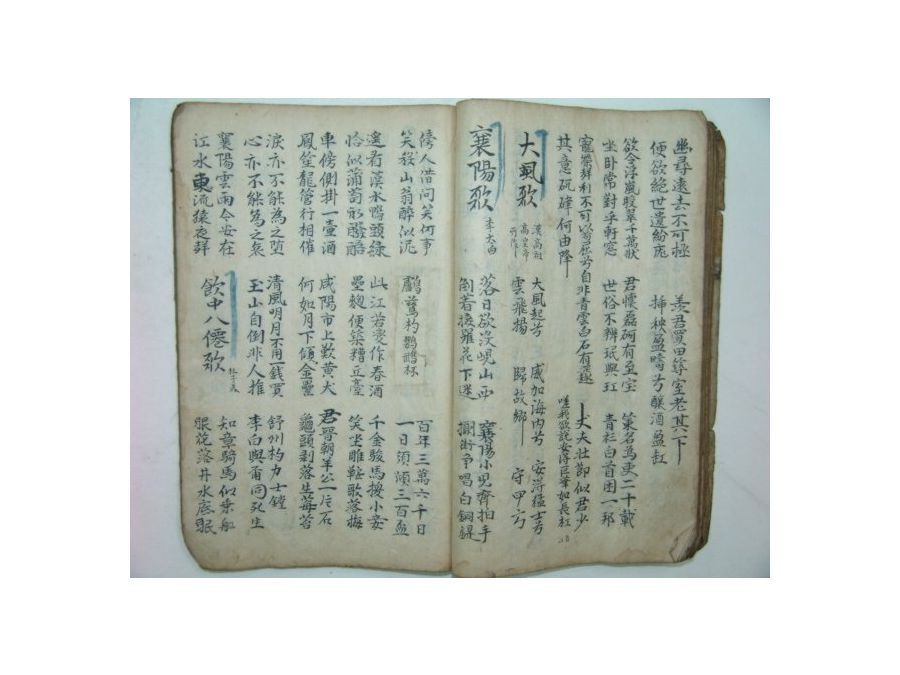 幽尋遠去不可極
便欲絕世遺紛厖
羨君買田築室老其下
插秧盈疇兮釀酒盈缸
欲令浮嵐暖翠千萬狀
坐臥常對乎軒窓
君懷磊砢有至宝
世俗不辨珉與玒
策名為吏二十載
青衫白首困一邦
寵榮聲利不可以苟屈兮自非青雲白石有深趣
其意矹硉何由降
丈夫壯節似君少
嗟我欲說安得巨筆如長杠
大風歌
漢高祖
高皇帝
所作
大風起兮
雲飛揚
威加海內兮
歸故鄉
安得猛士兮
襄陽歌
李太白
落日欲沒峴山西
倒著接䍦花下迷
襄陽小児齊拍手
攔街爭唱白銅鍉
傍人借問笑何事
笑殺山翁醉似泥
鸕鶿杓鸚鵡杯
百年三萬六千日
一日須傾三百盃
遙看漢水鴨頭綠
恰似葡萄初醱醅
此江若變作春酒
壘麴便築糟丘臺
千金駿馬換小妾
笑坐雕鞍歌落梅
車傍側掛一壺酒
鳳笙龍管行相催
咸陽市上歎黃犬
何如月下傾金罍
君晉朝羊公一片石
龜頭剥落生莓苔
淚亦不能為之墮
心亦不能為之哀
清風明月不用一錢買
玉山自倒非人推
舒州杓力士鐺
李白與甭同死生
襄陽雲雨今安在
江水東流猿夜聲
飲中八僊歌
知章騎馬似乗船
眼花落井水底眠